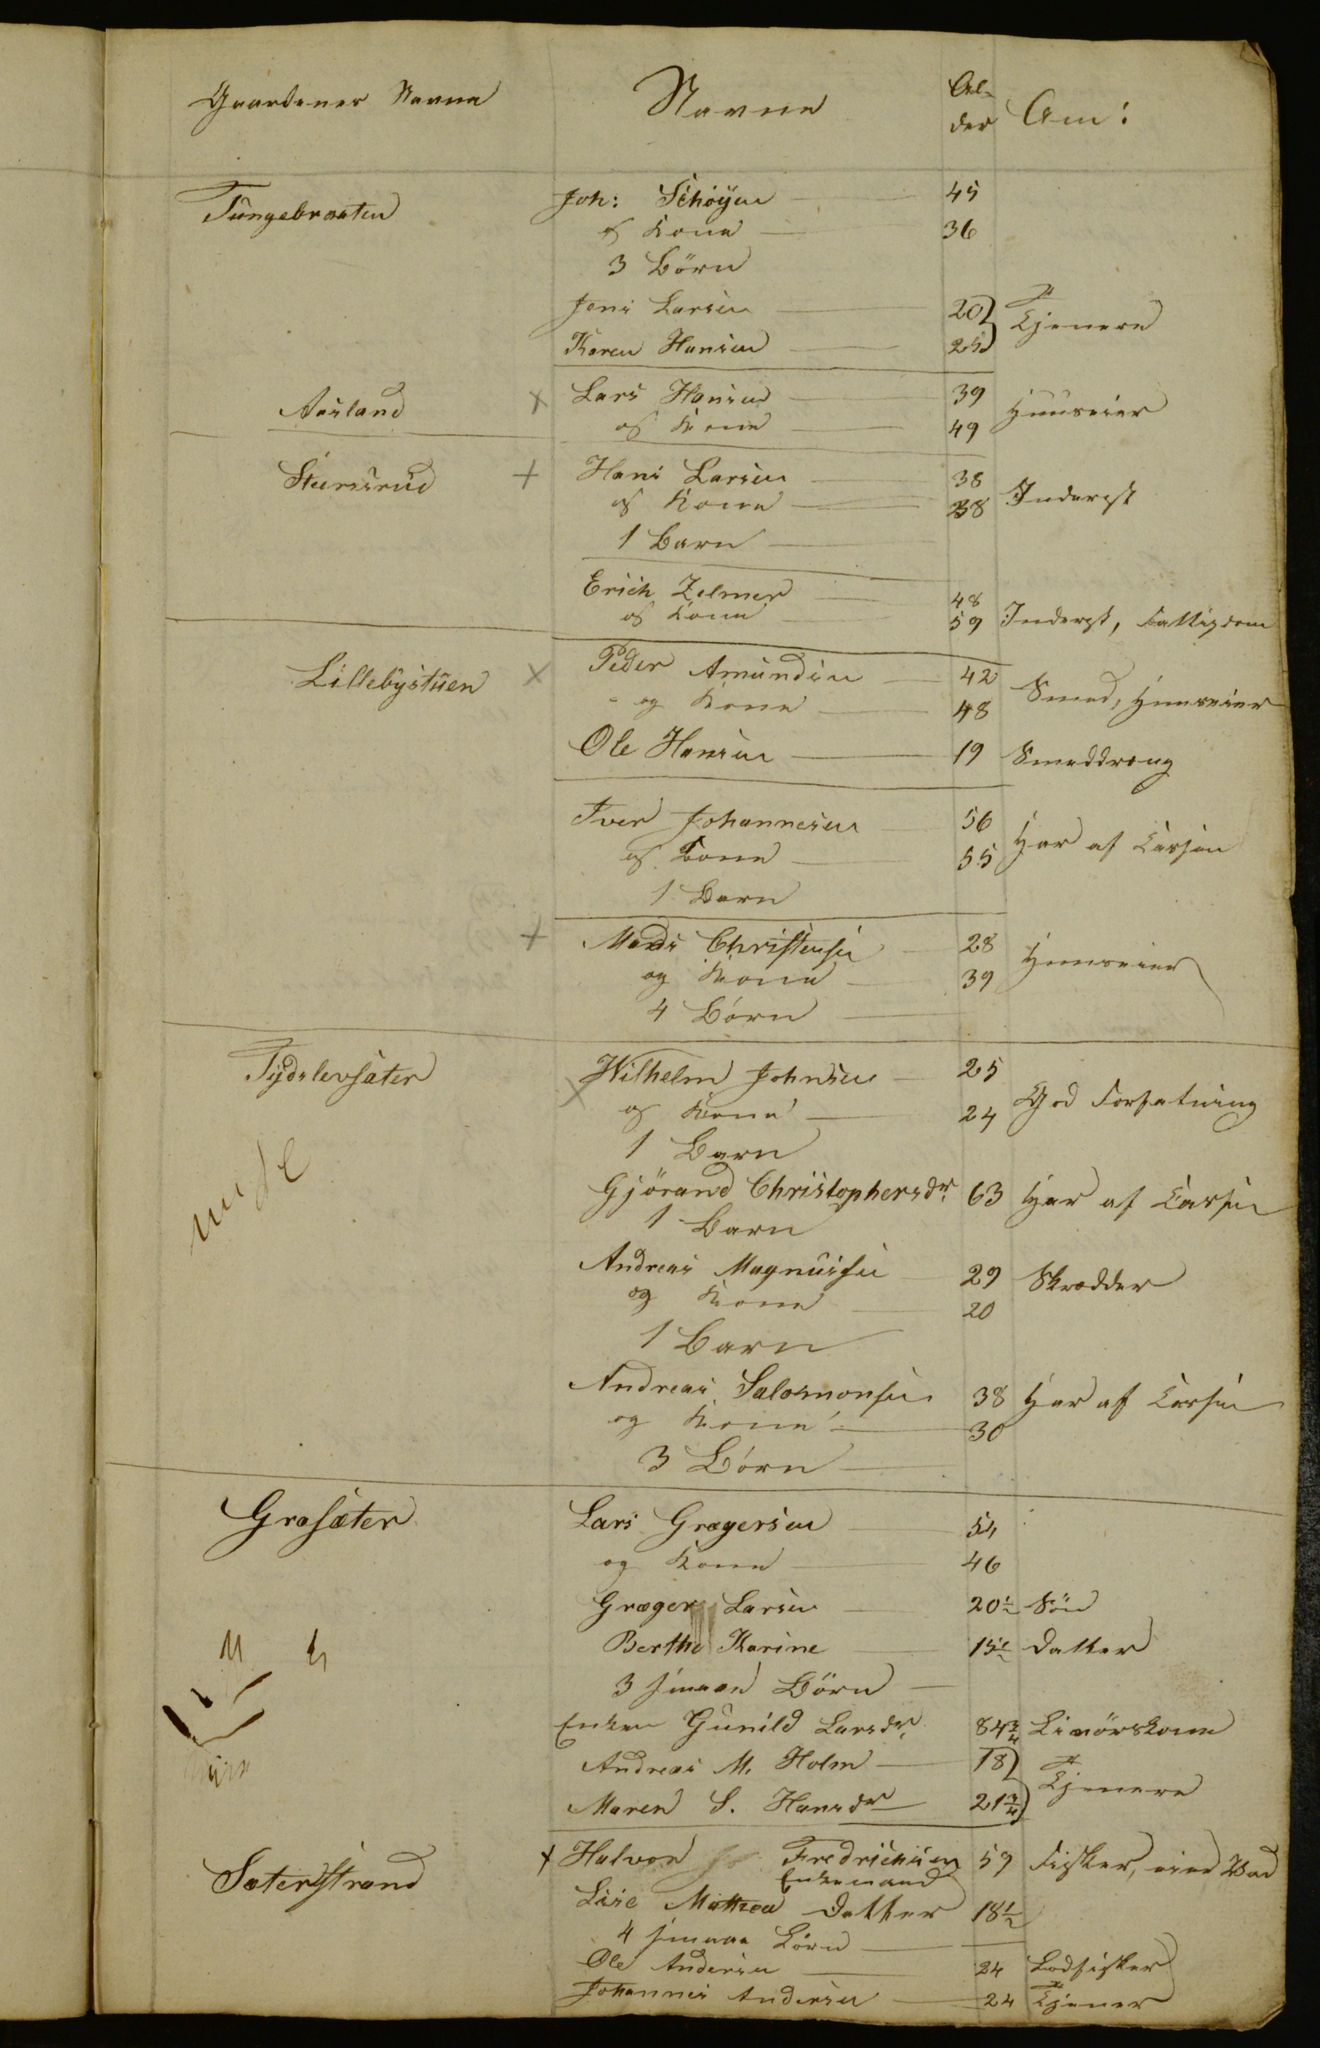 Gaardenes Navne Navne Al-
der Anm:
Tungebraaten Joh: Schöyen 45
og Kone 36
3 Börn
Jens Larsen 20 Tjenere
Karen Hansen 25
Aasland × Lars Hansen 39 Huuseier
og Kone 49
Stuersrud + Hans Larsen 38 Inderst
og Kone 38
1 Barn
Erich Zelmer 48
og Kone 59 Inderst, Fattigdom
Lillebystuen × Peder Amundsen 42 Smed, Huuseier
og Kone 48
Ole Hansen 19 Smeddreng
Iver Johannesen 56 Har af Kassen
og Kone 55
1 Barn
+ Mads Christensen 28 Huuseier
og Kone 39
4 Börn
Tydslevsæter × Wilhelm Johnsen 25 God Forfatning
og Kone 24
1 Barn
Gjörand Christophersdr 63 Har af Kassen
1 Barn
Andreas Magnussen 29 Skrædder
og Kone 20
1 Barn
Andreas Salomonsen 38 Har af Kassen
og Kone 30
3 Börn
Grasæter Lars Grægersen 54
og Kone 46
Græger Larsen 20½ Sön
Berthe Karine 15½ Datter
3 smaae Börn
Enken Gunild Larsdr 84¾
Andreas M. Holm 18 Tjenere
Maren S. Hansdr 21¾
Sæterstrand + Halvor Fredrichsen 59 Fisker, eier Baad
Enkemand
Lise Mathea Datter 18½
4 smaae Börn
Ole Andersen 24 Lodsfisker
Johannes Andersen 24 Tjener